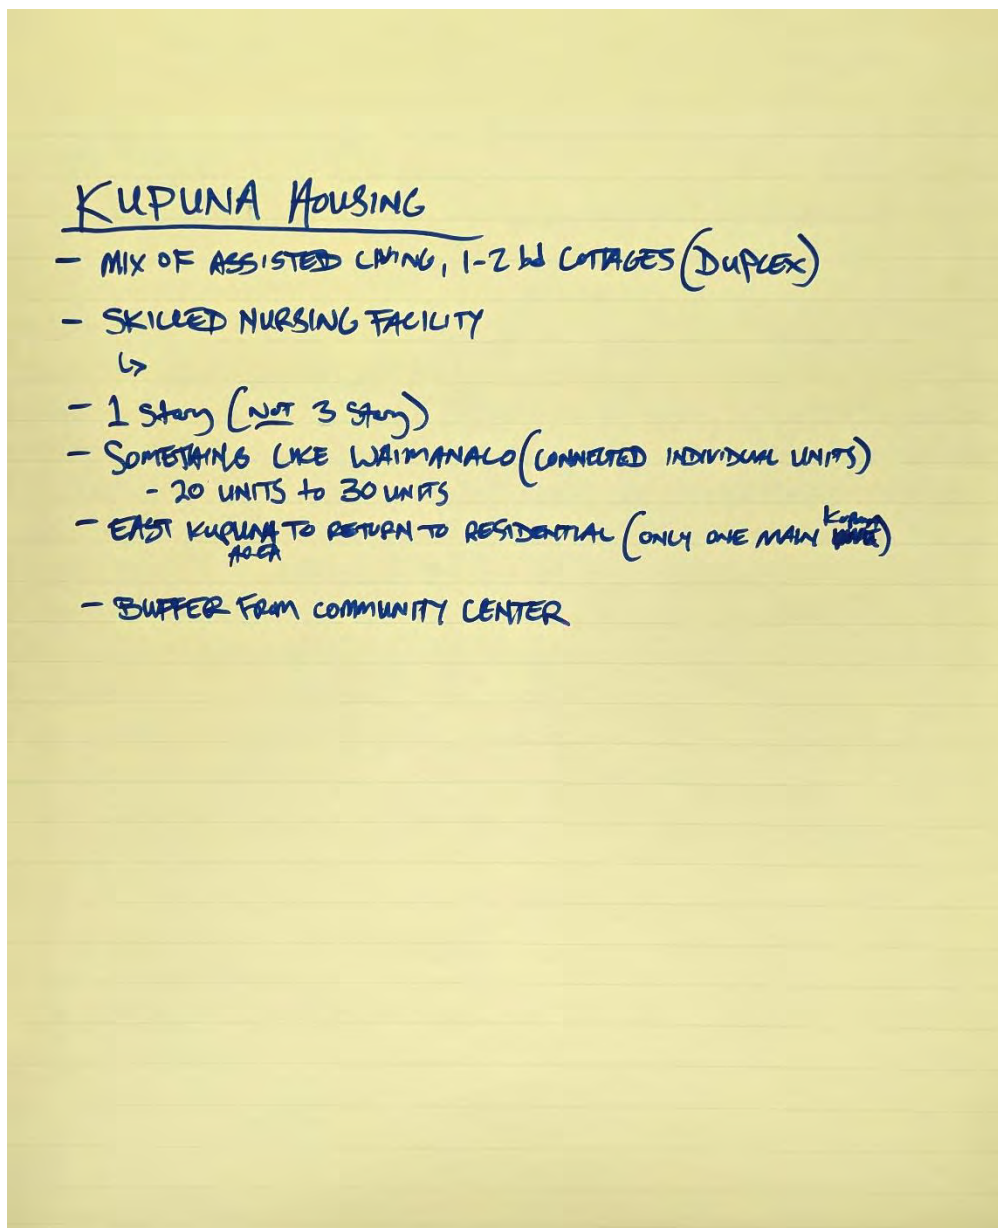 KUPUNA HOUSING
- MIX OF ASSISTED LIVING, 1-2 bd COTTAGES (DUPLEX)
- SKILLED NURSING FACILITY
↳
- 1 Story (NOT 3 Story)
- SOMETHING LIKE WAIMANALO (CONNECTED INDIVIDUAL UNITS)
- 20 UNITS to 30 UNITS
- EAST KUPUNA AREA TO RETURN TO RESIDENTIAL (ONLY ONE MAIN Kupuna)
- BUFFER FROM COMMUNITY CENTER